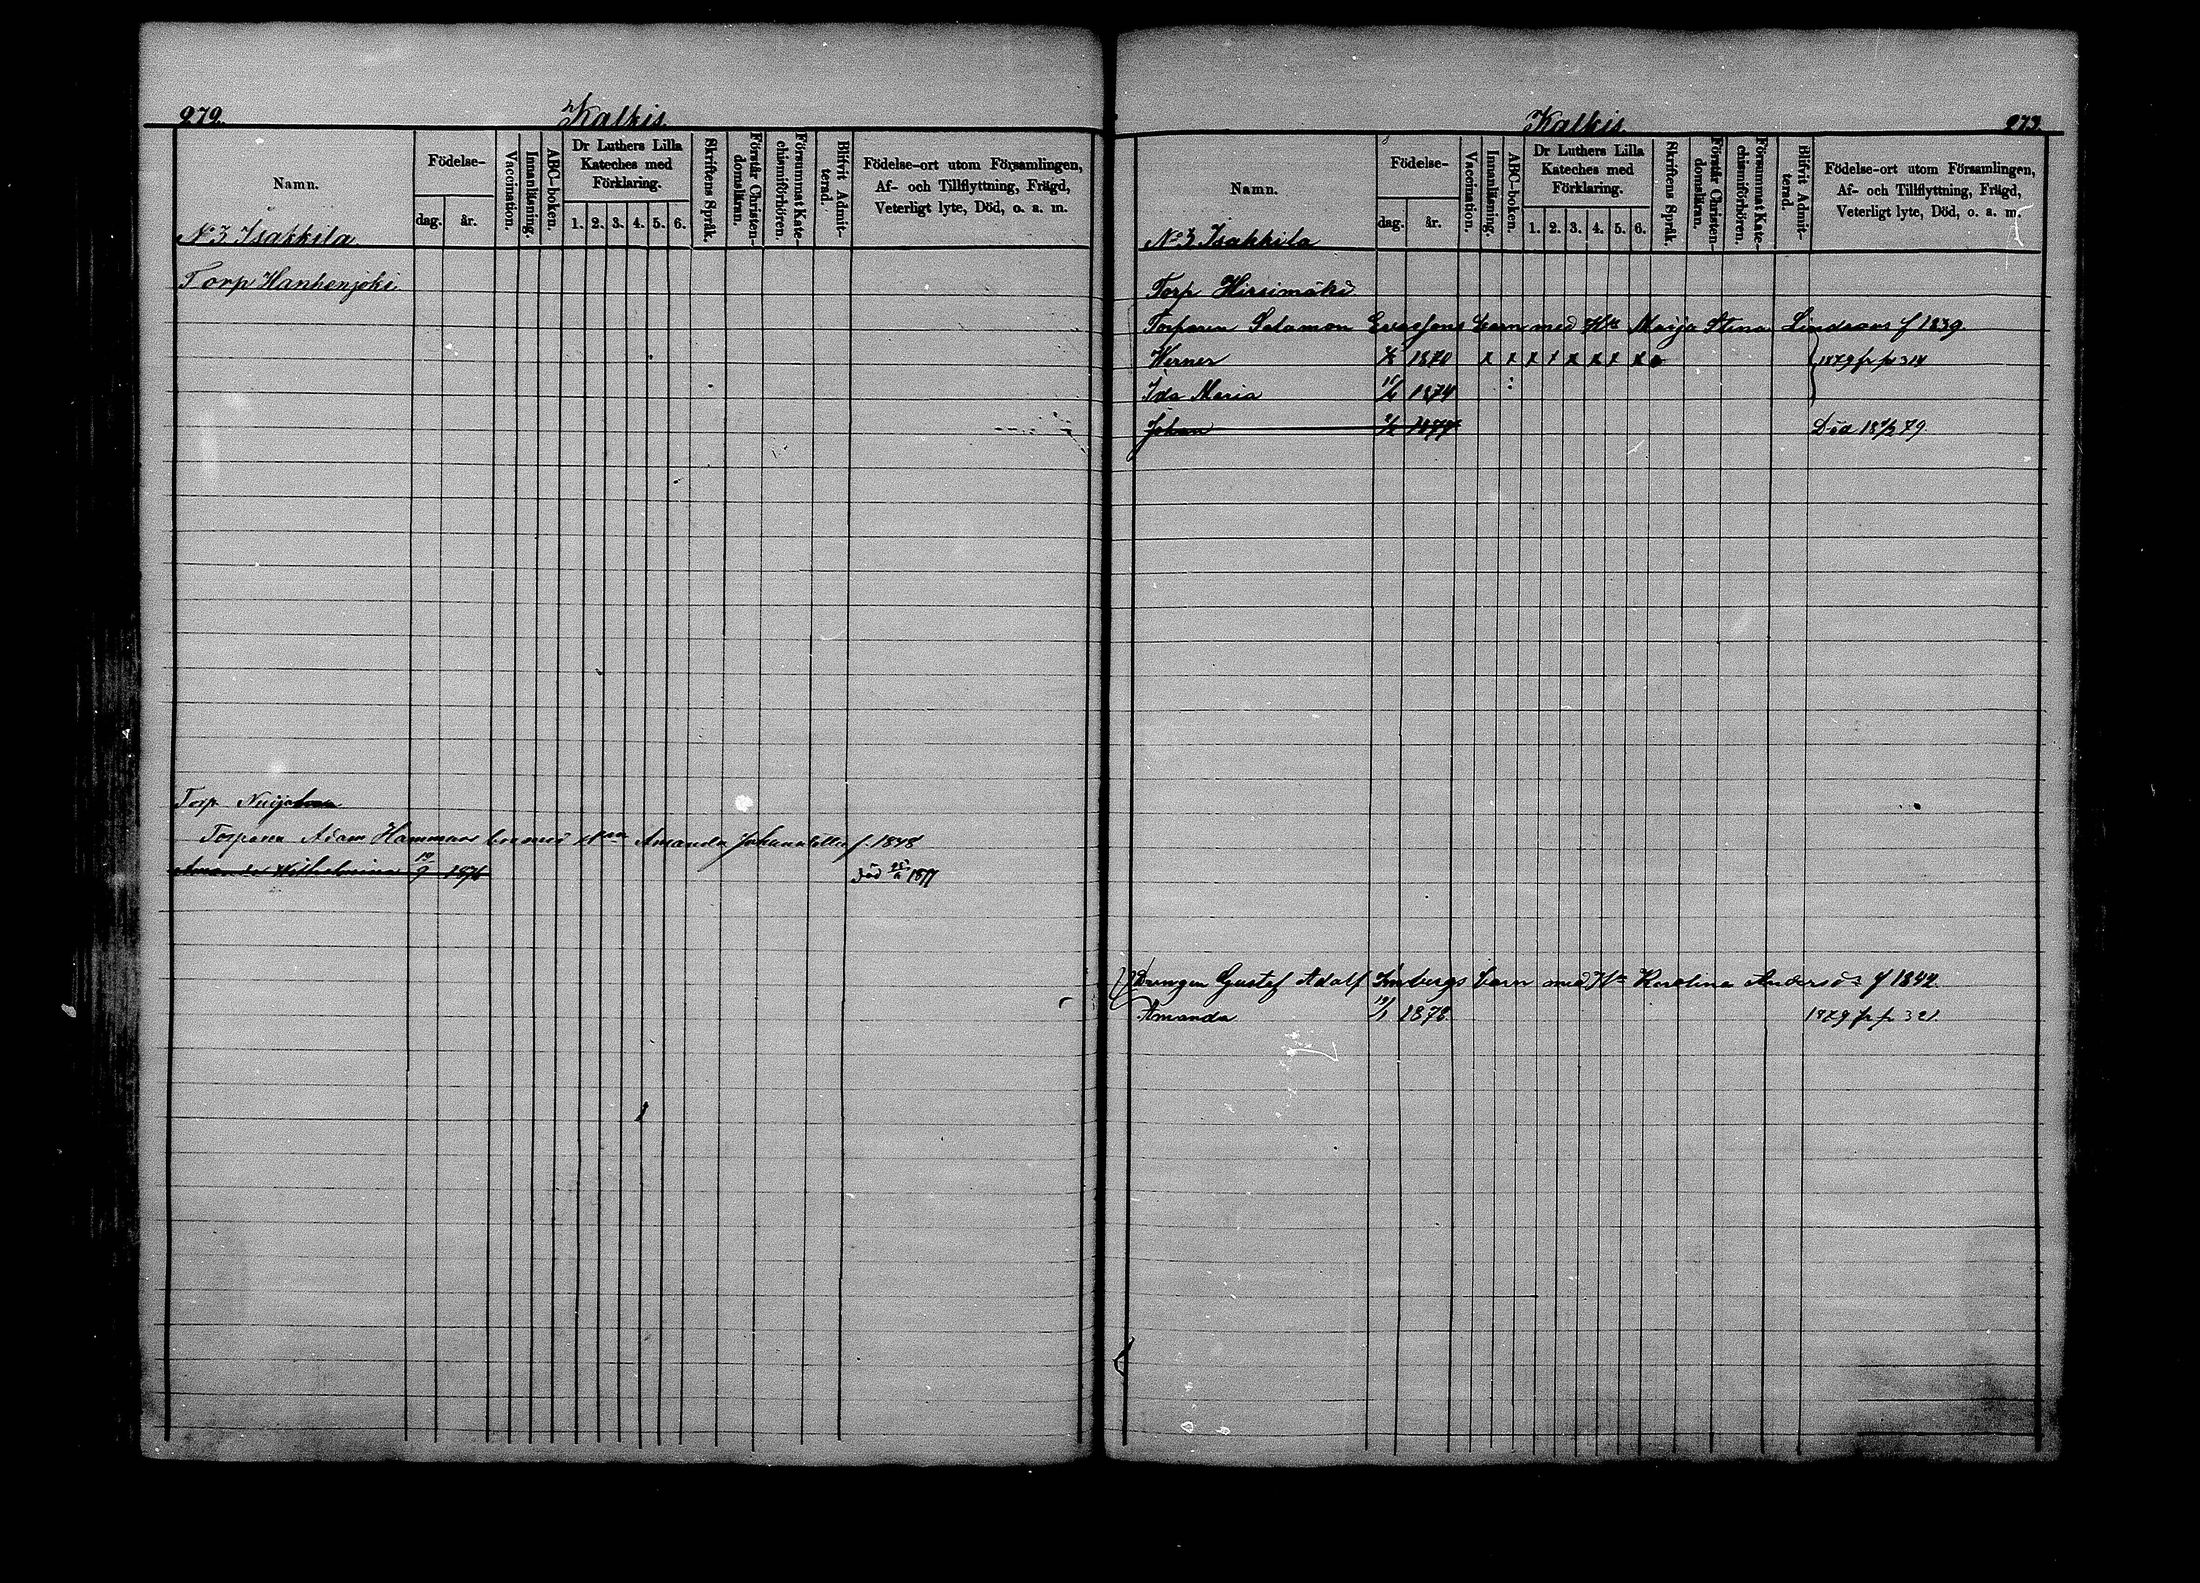 272.
Kalkis
Namn.
Födelse-
dag. år.
Vaccination.
Innanläsning.
ABC-boken.
Dr Luthers Lilla Kateches med Förklaring.
1. 2. 3. 4. 5. 6.
Skriftens Språk.
Förstår Christendomsläran.
Försummat Katechismiförhören.
Blifvit Admitterad.
Födelse-ort utom Församlingen, Af- och Tillflyttning, Frägd, Veterligt lyte, Död, o. a. m.
No 3 Isakkila
Torp Hanhenjoki
Torp
Torparen Adam Hammars barn med Amanda f. 1848
Wilhelmina 19/9 1876 Död 1877
Kalkis
273.
Namn.
Födelse-
dag. år.
Vaccination.
Innanläsning.
ABC-boken.
Dr Luthers Lilla Kateches med Förklaring.
1. 2. 3. 4. 5. 6.
Skriftens Språk.
Förstår Christendomsläran.
Försummat Katechismiförhören.
Blifvit Admitterad.
Födelse-ort utom Församlingen, Af- och Tillflyttning, Frägd, Veterligt lyte, Död, o. a. m.
No 3 Isakkila
Torp Hirsimäki
Torparen Salomon barn med Maija Stina f 1839
Werner 1870 x x x x x x x x 1879 fr p 314
Ida Maria 1874
Johan 1877 Död 79
Drengen Gustef Adolf barn med Karolina f 1842.
Amanda 19/1 1878 1879 fr p 321.